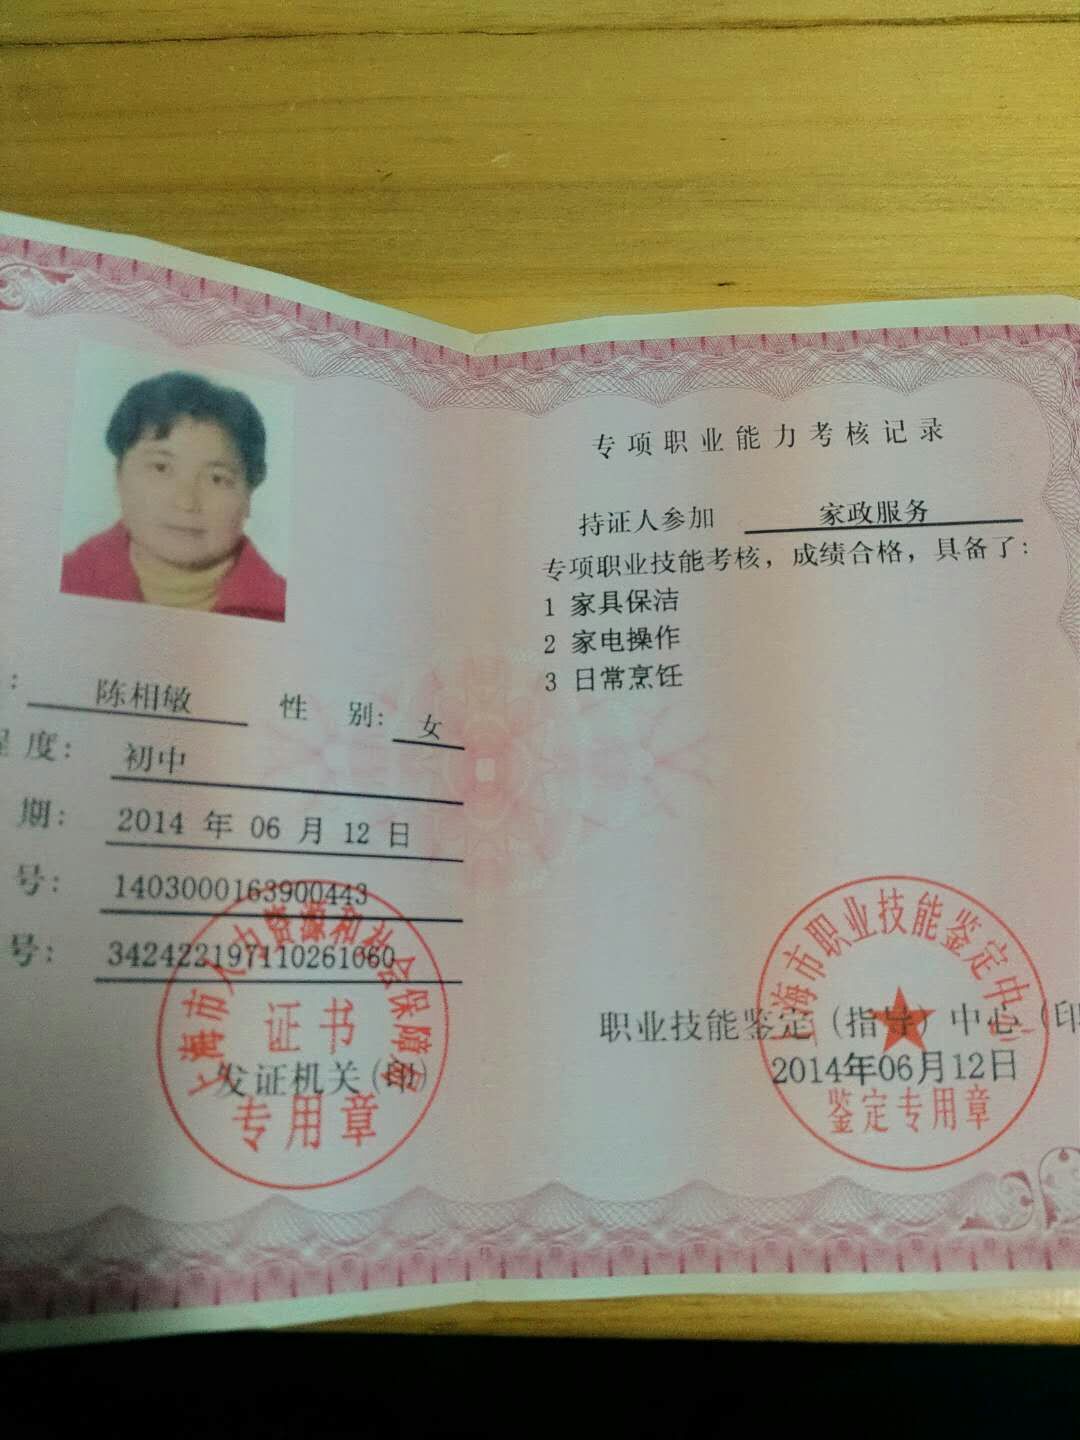 ：陈相敏 性 别：女
度：初中
期：2014 年 06 月 12 日
号：1403000163900443
号：342422197110261060
上海市人力资源和社会保障局
证书
发证机关(印)
专用章
专项职业能力考核记录
持证人参加 家政服务
专项职业技能考核，成绩合格，具备了：
1 家具保洁
2 家电操作
3 日常烹饪
上海市职业技能鉴定中心
职业技能鉴定（指导）中心（印
2014年06月12日
鉴定专用章